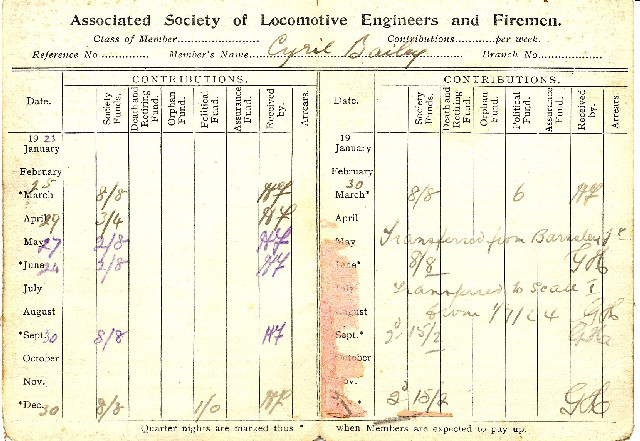 Associated Society of Locomotive Engineers and Firemen.
Class of Member............ Contributions............per week.
Reference No............ Member's Name Cyril Bailey Branch No............
CONTRIBUTIONS. CONTRIBUTIONS.
Date. Society Funds. Death and Retiring Fund. Orphan Fund. Political Fund. Assurance Fund. Received by. Arrears. Date. Society Funds. Death and Retiring Fund. Orphan Fund. Political Fund. Assurance Fund. Received by. Arrears.
1923 19
January January
February February
25 30
*March 8/8 *March 8/8 6
April 29 3/4 April
May 27 2/8 May Transferred from Barnsley
*June 24 2/8 June* 8/8 GH
July July Transferred to Scale 1
August August from 1/1/24 GH
*Sept. 30 8/8 Sept.* 15/2
October October
Nov. Nov.
*Dec. 30 8/8 1/0 15/2 GH
Quarter nights are marked thus * when Members are expected to pay up.